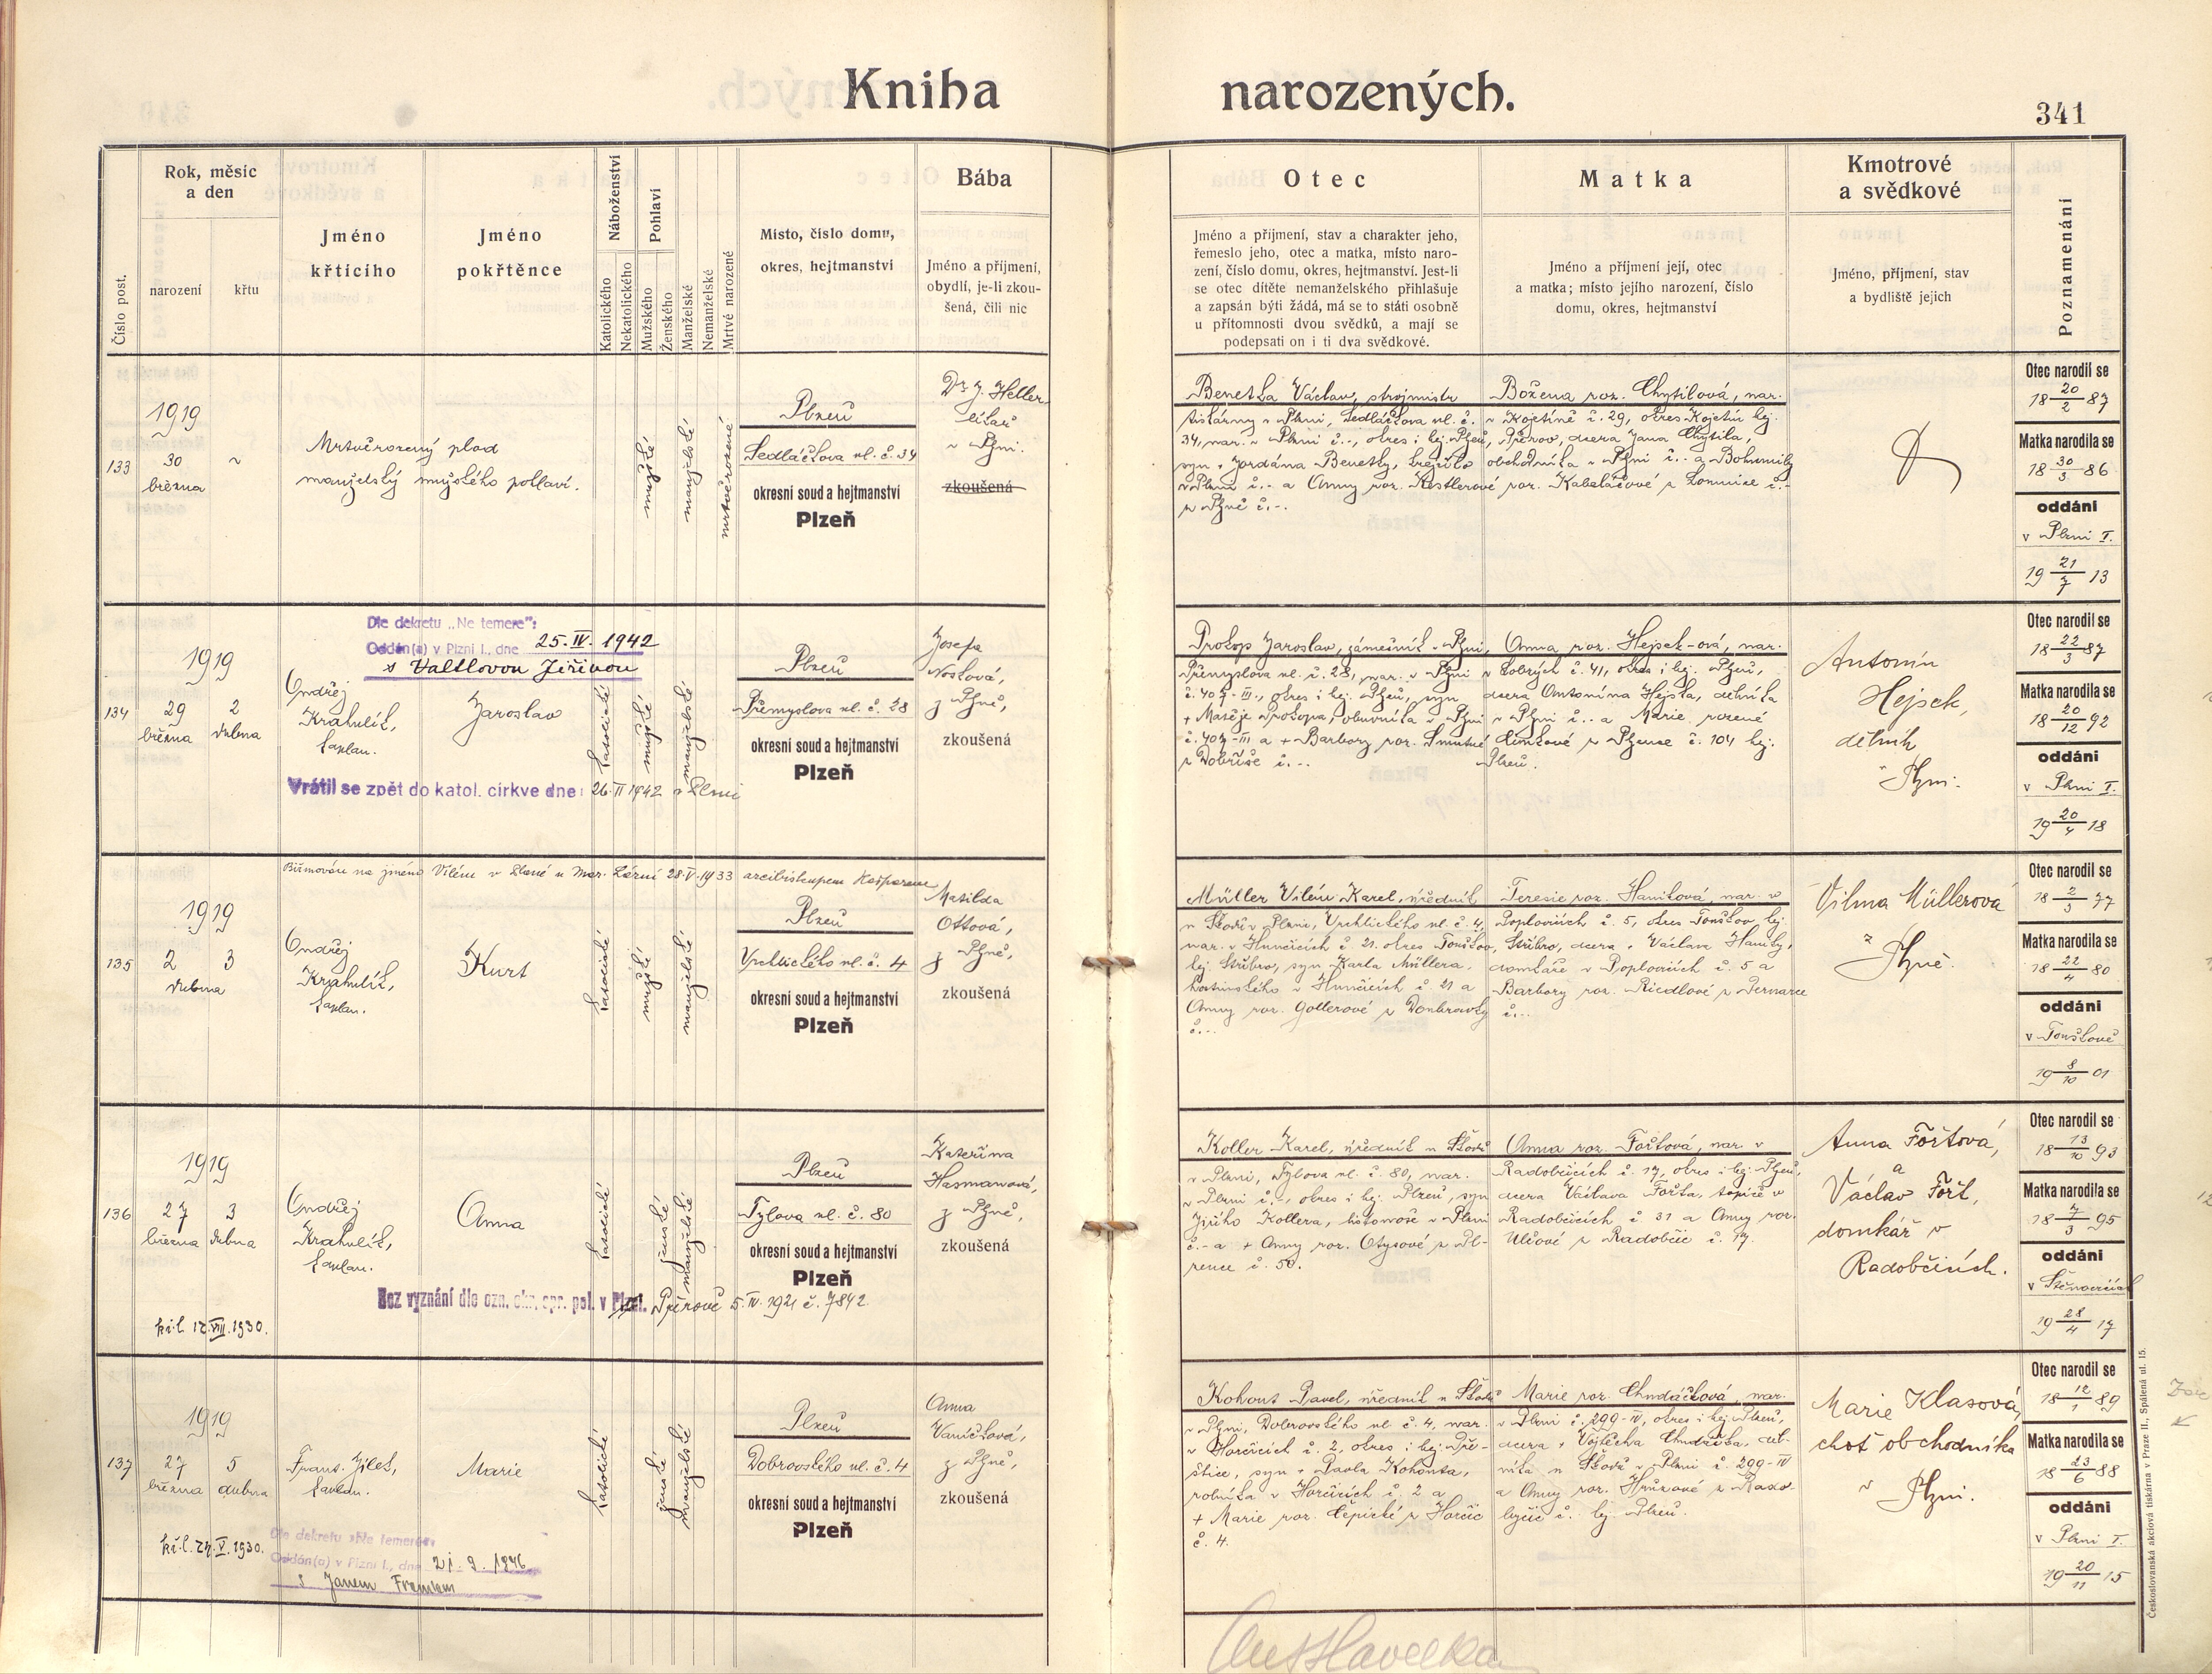 Kniha narozených.
341
Číslo post.
Rok, měsíc
a den
narození
křtu
Jméno
křtícího
Jméno
pokřtěnce
Náboženství
Katolického
Nekatolického
Pohlaví
Mužského
Ženského
Manželské
Nemanželské
Mrtvě narozené
Místo, číslo domu,
okres, hejtmanství
Bába
Jméno a příjmení,
obydlí, je-li zkou-
šená, čili nic
Otec
Jméno a příjmení, stav a charakter jeho,
řemeslo jeho, otec a matka, místo naro-
zení, číslo domu, okres, hejtmanství. Jest-li
se otec dítěte nemanželského přihlašuje
a zapsán býti žádá, má se to státi osobně
u přítomnosti dvou svědků, a mají se
podepsati on i ti dva svědkové.
Matka
Jméno a příjmení její, otec
a matka; místo jejího narození, číslo
domu, okres, hejtmanství
Kmotrové
a svědkové
Jméno, příjmení, stav
a bydliště jejich
Poznamenání
133
1919
30
března
~
Mrtvěrozený plod
manželský mužského pohlaví.
mužské
manželské
mrtvěrozené
Plzeň
Sedláčkova ul. č. 34
okresní soud a hejtmanství
Plzeň
Dr. J. Heller
lékař
v Plzni.
zkoušená
Benetka Václav, strojmistr
tiskárny v Plzni, Sedláčkova ul. č.
34, nar. v Plzni č.-, okres i hej. Plzeň,
syn + Jordána Benetky, krejčího
v Plzni č.- a Anny roz. Kestlerové
z Plzně č.-.
Božena roz. Chytilová, nar.
v Kojetíně č. 29, okres Kojetín hej.
Přerov, dcera Jana Chytila,
obchodníka v Plzni č.- a Bohumily
roz. Kabeláčové z Lomnice č.-
Otec narodil se
18 20/2 87
Matka narodila se
18 30/3 86
oddáni
v Plzni I.
19 21/7 13
134
1919
29
března
2
dubna
Dle dekretu „Ne temere":
Oddán(a) v Plzni I., dne 25.IV. 1942
s Valtlovou Jiřinou
Ondřej
Krahulík,
kaplan.
Jaroslav
Vrátil se zpět do katol. církve dne: 26.II 1942 v Plzni
katolické
mužské
manželské
Plzeň
Přemyslova ul. č. 28
okresní soud a hejtmanství
Plzeň
Josefa
Nosková,
z Plzně,
zkoušená
Prokop Jaroslav, zámečník v Plzni,
Přemyslova ul. č. 28, nar. v Plzni
č. 407-III., okres i hej. Plzeň, syn
+ Matěje Prokopa, obuvníka v Plzni
č. 407-III a + Barbory roz. Smutné
z Dobříše č.-.
Anna roz. Hejsek-ová, nar.
v Lobzích č. 41, okres i hej. Plzeň,
dcera Antonína Hejska, dělníka
v Plzni č.- a Marie, rozené
z Plzence č. 104 hej.
Plzeň.
Antonín
Hejsek,
dělník
v Plzni.
Otec narodil se
18 22/3 87
Matka narodila se
18 20/12 92
oddáni
v Plzni I.
19 20/4 18
135
1919
2
dubna
3
Biřmován na jméno Vilém v Plzni u Mar. Lázní 28.V.1933 arcibiskupem Kašparem
Ondřej
Krahulík,
kaplan.
Kurt
katolické
mužské
manželské
Plzeň
Vrchlického ul. č. 4
okresní soud a hejtmanství
Plzeň
Matilda
Ottová,
z Plzně,
zkoušená
Müller Vilém Karel, úředník
u Škodů v Plzni, Vrchlického ul. č. 4,
nar. v Hunčicích č. 21. okres Touškov,
hej. Stříbro, syn Karla Müllera,
hostinského v Hunčicích č. 21 a
Anny roz. Gollerové z Doubravky
č.-.
Teresie roz. Haniková, nar v
Poplovicích č. 5, okres Touškov, hej.
Stříbro, dcera + Václava Haniky,
domkáře v Poplovicích č. 5 a
Barbory roz. Riedlové z Pernarce
č.-.
Vilma Müllerová
z
Plzně.
Otec narodil se
18 2/3 77
Matka narodila se
18 22/4 80
oddáni
v Touškově
19 8/10 01
136
1919
27
března
3
dubna
kř.l. 12.VIII.1930.
Ondřej
Krahulík,
kaplan.
Anna
Bez vyznání dle ozn. okr. spr. pol. v Plzni. Přerově 5.IV.1921 č. 7842.
katolické
ženské
manželské
Plzeň
Tylova ul. č. 80
okresní soud a hejtmanství
Plzeň
Kateřina
Hasmanová,
z Plzně,
zkoušená
Koller Karel, úředník u Škodů
v Plzni, Tylova ul. č. 80, nar.
v Plzni č.-, okres i hej. Plzeň, syn
Jiřího Kollera, listonoše v Plzni
č.- a + Anny roz. Otysové z Pl-
zence č. 50.
Anna roz. Fořtová, nar. v
Radobčicích č. 17, okres i hej. Plzeň,
dcera Václava Fořta, topiče v
Radobčicích č 31 a Anny roz.
Ulčové z Radobčic č. 17.
Anna Fořtová,
a
Václav Fořt,
domkář v
Radobčicích.
Otec narodil se
18 13/10 93
Matka narodila se
18 7/3 95
oddáni
v Štěnovicích
19 28/4 17
137
1919
27
března
5
dubna
kř.l. 27.V.1930.
Frant. Jílek,
kaplan.
Marie
Dle dekretu „Ne temere":
Oddán(a) v Plzni I., dne 21. 9. 1946
s Janem
katolické
ženské
manželské
Plzeň
Dobrovského ul. č. 4
okresní soud a hejtmanství
Plzeň
Anna
Vaníčková,
z Plzně,
zkoušená
Kohout Pavel, úředník u Škodů
v Plzni, Dobrovského ul č. 4, nar.
v Horčicích č. 2, okres i hej. Pře-
štice, syn + Pavla Kohouta,
rolníka v Horčicích č. 2 a
+ Marie roz. Čepické z Horčic
č. 4.
Marie roz. Chudáčková, nar.
v Plzni č. 299-IV, okres i hej. Plzeň,
dcera + Vojtěcha Chudáčka, děl-
níka u Škodů v Plzni č. 299-IV
a Anny roz. Hrůzové z Rako-
lyčic č.- hej. Plzeň.
Marie Klasová,
choť obchodníka
v Plzni.
Otec narodil se
18 12/1 89
Matka narodila se
18 23/6 88
oddáni
v Plzni I.
19 20/11 15
Československá akciová tiskárna v Praze II., Spálená ul. 15.